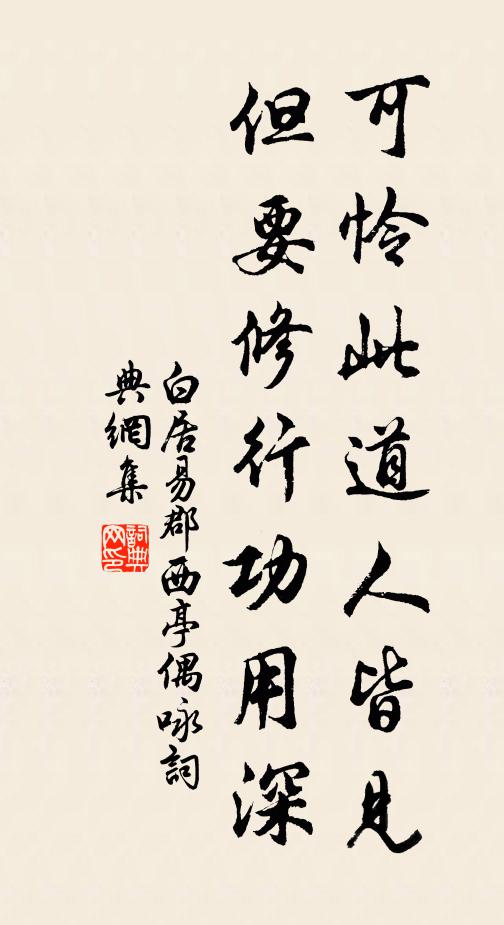 可怜此道人皆見
但要修行功用深
白居易郡西亭偶咏詞
典網集
詞典
网印